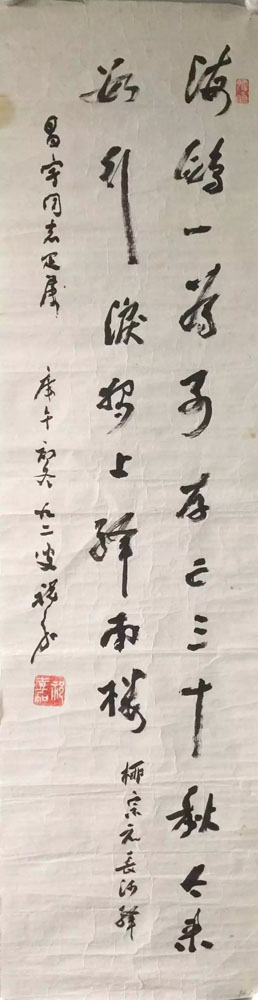 海鶴一為别存亡三十秋今来
數行淚獨上驛南樓 柳宗元長沙驛
昌宇同志正属 庚午初冬九二叟祝嘉
祝嘉